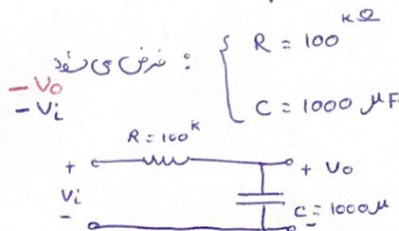 فرض می شود : R = 100 KΩ
C = 1000 μF
- Vo
- Vi
R = 100 K
+ + Vo
Vi
C = 1000 μ
- -